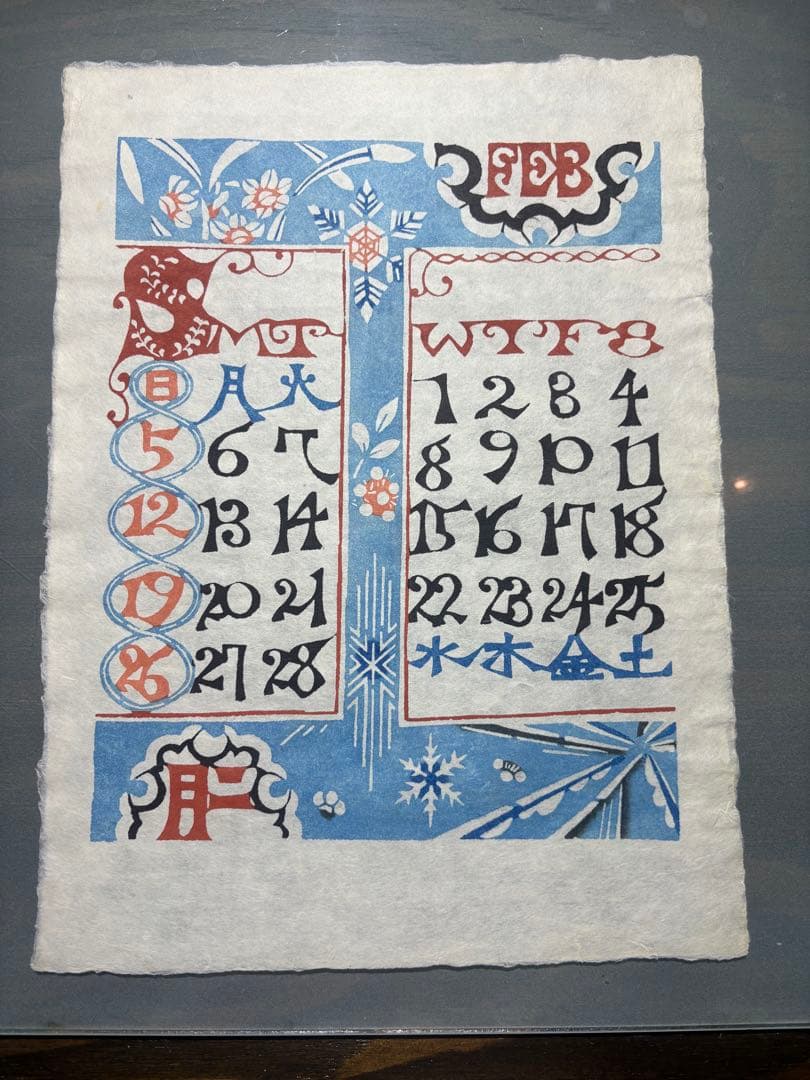 FEB
S M T W T F S
日 月 火 1 2 3 4
5 6 7 8 9 10 11
12 13 14 15 16 17 18
19 20 21 22 23 24 25
26 27 28 水 木 金 土
二月